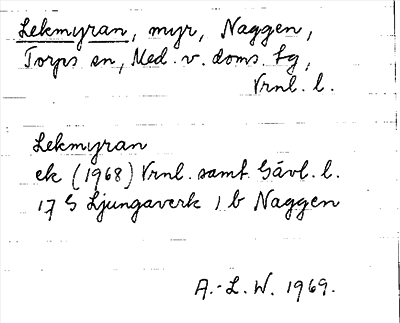 Lekmyran, myr, Naggen,
Torps sn, Med. v. doms. fg,
Vrnl. l.
Lekmyran
ek (1968) Vrnl. samt Gävl. l.
17 G Ljungaverk 1 b Naggen
A.-L. W. 1969.